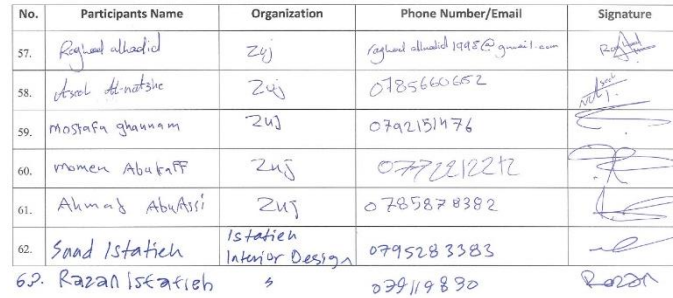 No. Participants Name Organization Phone Number/Email Signature
57. Raghad alhadid Zuj raghad alhadid 1998@gmail.com Raghad
58. Assel Al-natshe Zuj 0785660652
59. Mostafa ghannam ZUJ 0792151476
60. momen Abukaff Zuj 0772212212
61. Ahmad AbuAssi ZUJ 0785878382
62. Saad Istatieh Istatieh Interior Design 0795283383
63. Razan Istatieh 079119830 Razan